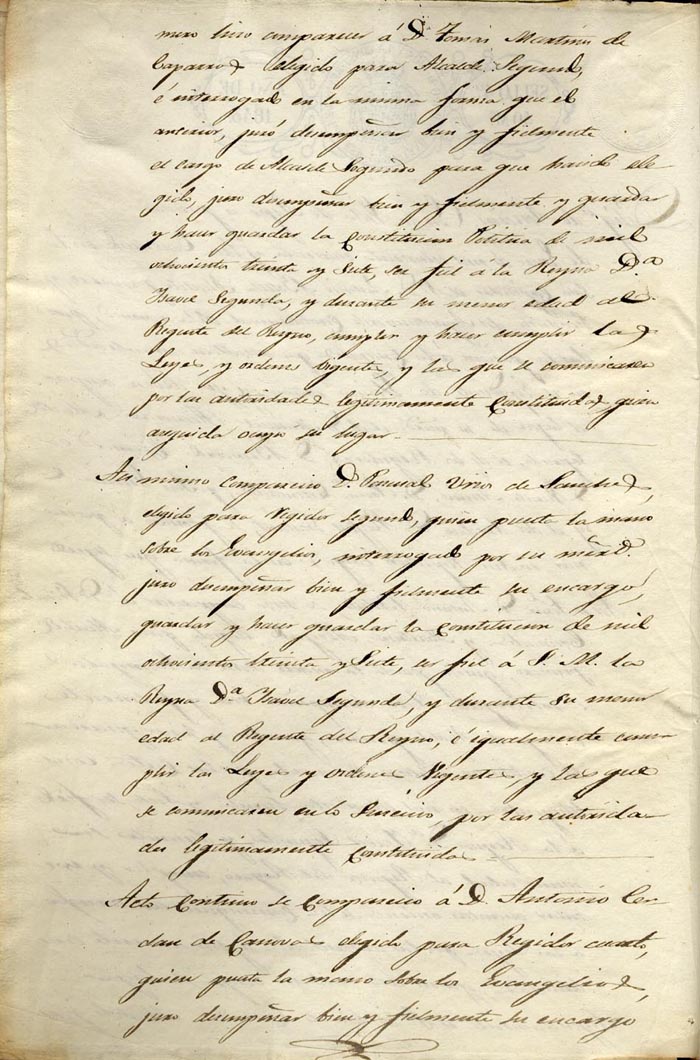 mero hizo comparecer á D.n Tomás Martinez de
Caparros elegido para Alcalde Segundo,
é interrogado en la misma forma que el
anterior, juró desempeñar bien y fielmente
el cargo de Alcalde Segundo para que ha sido ele-
gido, juro desempeñar bien y fielmente y guardar
y hacer guardar la Constitucion Politica de mil
ochocientos treinta y Siete, ser fiel á la Reyna D.a
Isavel Segunda, y durante su menor edad al
Regente del Reyno, cumplir y hacer cumplir las
Leyes, y ordenes vigentes, y las que se comunicaren
por las autoridades legitimamente Constituidas, quien
enseguida ocupo su lugar.
Asi mismo comparecio D.n Pascual de Sanchez,
elegido para Regidor segundo, quien puesta la mano
sobre los Evangelios, interrogado por su
juro desempeñar bien y fielmente su encargo,
guardar y hacer guardar la Constitucion de mil
ochocientos treinta y Siete, ser fiel á S. M. la
Reyna D.a Isavel Segunda, y durante su menor
edad al Regente del Reyno, é igualmente cum-
plir las Leyes y ordenes Vigentes, y las que
se comunicaren en lo Sucecivo, por las autorida-
des legitimamente Constituidas
Acto Continuo se Comparecio á D. Antonio Cer-
dan de Canovas elegido para Regidor cuarto,
quien puesta la mano sobre los Evangelios,
juro desempeñar bien y fielmente su encargo